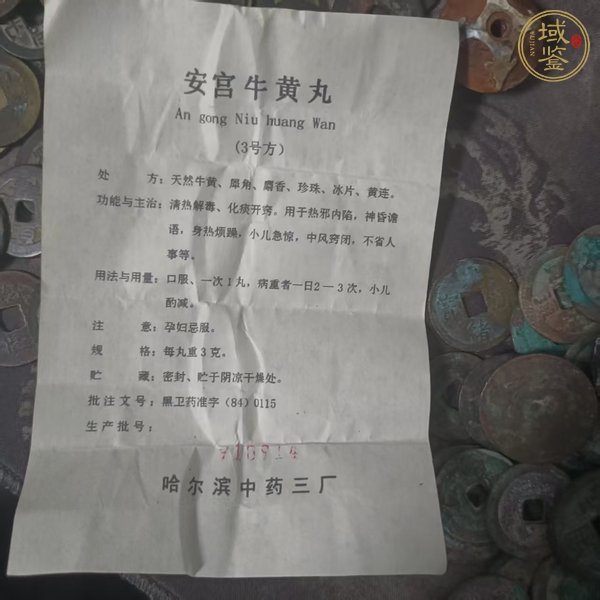 安宫牛黄丸
An gong Niu huang Wan
(3号方)
处 方：天然牛黄、犀角、麝香、珍珠、冰片、黄连。
功能与主治：清热解毒、化痰开窍。用于热邪内陷，神昏谵
语，身热烦躁，小儿急惊，中风窍闭，不省人
事等。
用法与用量：口服、一次1丸，病重者一日2—3次，小儿
酌减。
注 意：孕妇忌服。
规 格：每丸重3克。
贮 藏：密封、贮于阴凉干燥处。
批注文号：黑卫药准字(84)0115
生产批号：
910914
哈尔滨中药三厂
域鉴
YUJIAN